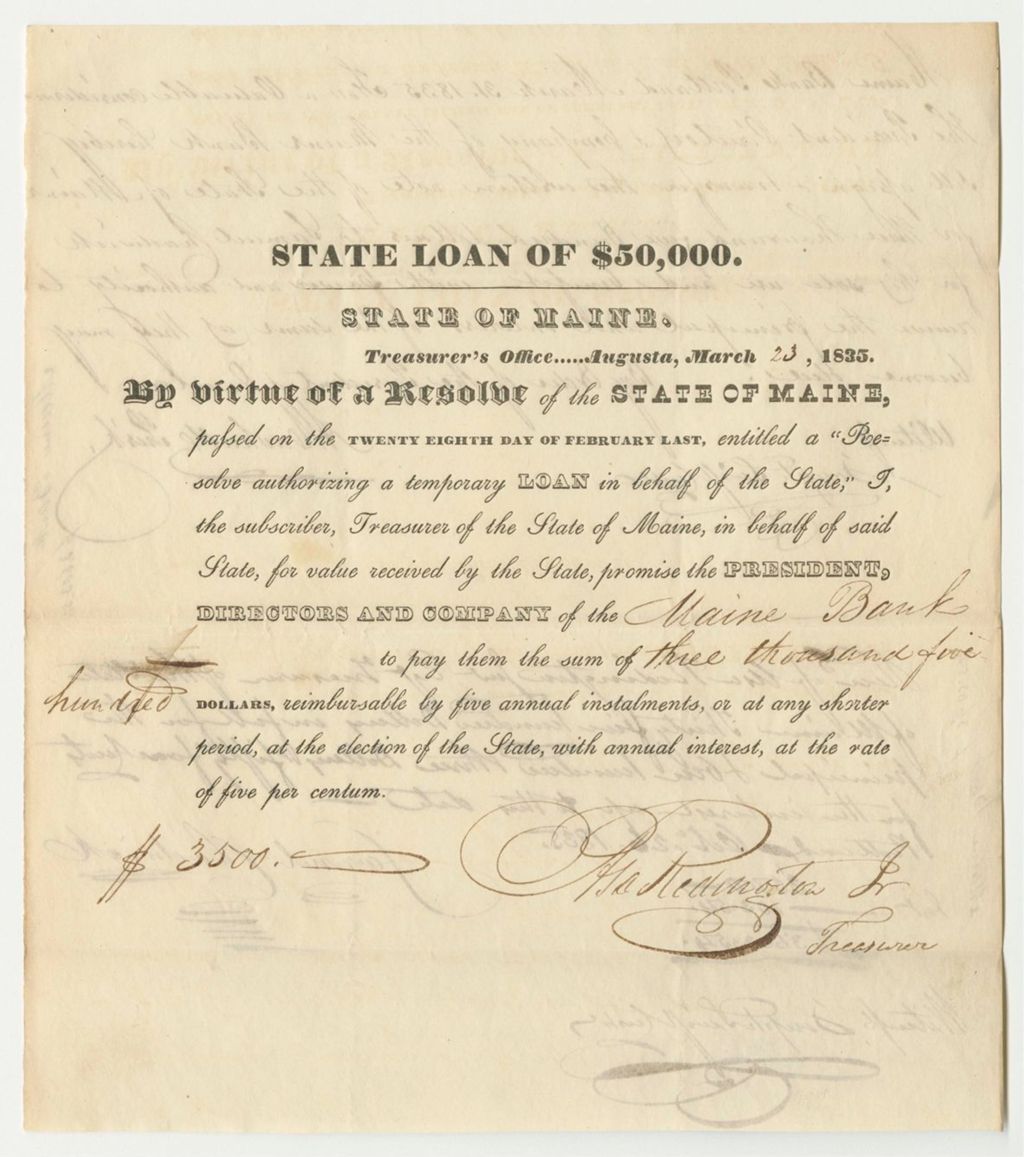 STATE LOAN OF $50,000.
STATE OF MAINE.
Treasurer's Office.....Augusta, March 23, 1835.
By virtue of a Resolve of the STATE OF MAINE,
paſsed on the TWENTY EIGHTH DAY OF FEBRUARY LAST, entitled a "Re=
solve authorizing a temporary LOAN in behalf of the State;" I,
the subscriber, Treasurer of the State of Maine, in behalf of said
State, for value received by the State, promise the PRESIDENT,
DIRECTORS AND COMPANY of the Maine Bank
to pay them the sum of three thousand five
hundred DOLLARS, reimbursable by five annual instalments, or at any shorter
period, at the election of the State, with annual interest, at the rate
of five per centum.
$ 3500.
Asa Redington Jr
Treasurer